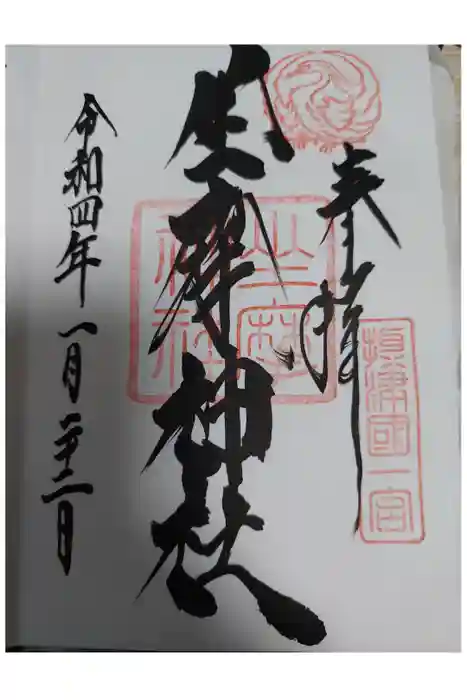 奉拝
攝津國一宮
坐摩神社
坐摩
神社
令和四年一月二十二日